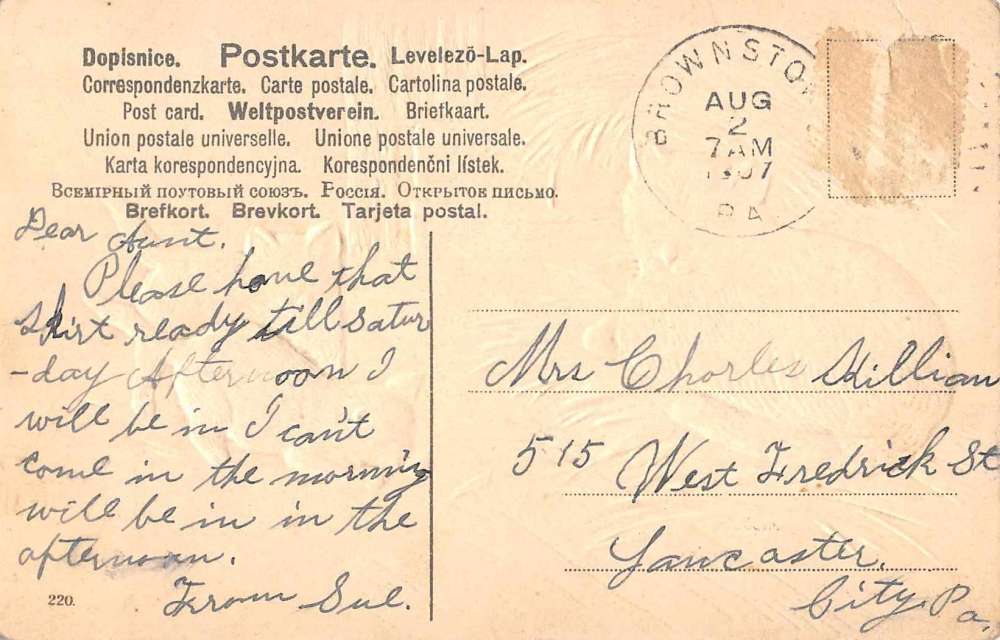 Dopisnice. Postkarte. Levelező-Lap.
Correspondenzkarte. Carte postale. Cartolina postale.
Post card. Weltpostverein. Briefkaart.
Union postale universelle. Unione postale universale.
Karta korespondencyjna. Korespondenční lístek.
Всемірный поутовый союзъ. Россія. Открытое письмо.
Brefkort. Brevkort. Tarjeta postal.
BROWNSTO
AUG
2
7AM
1907
PA
Dear Aunt.
Please have that
skirt ready till satur
-day Afternoon I
will be in I can't
come in the morning
will be in in the
afternoon.
From Sue.
220.
Mrs Charles Hillian
515 West Fredrick St
Lancaster.
City. Pa.